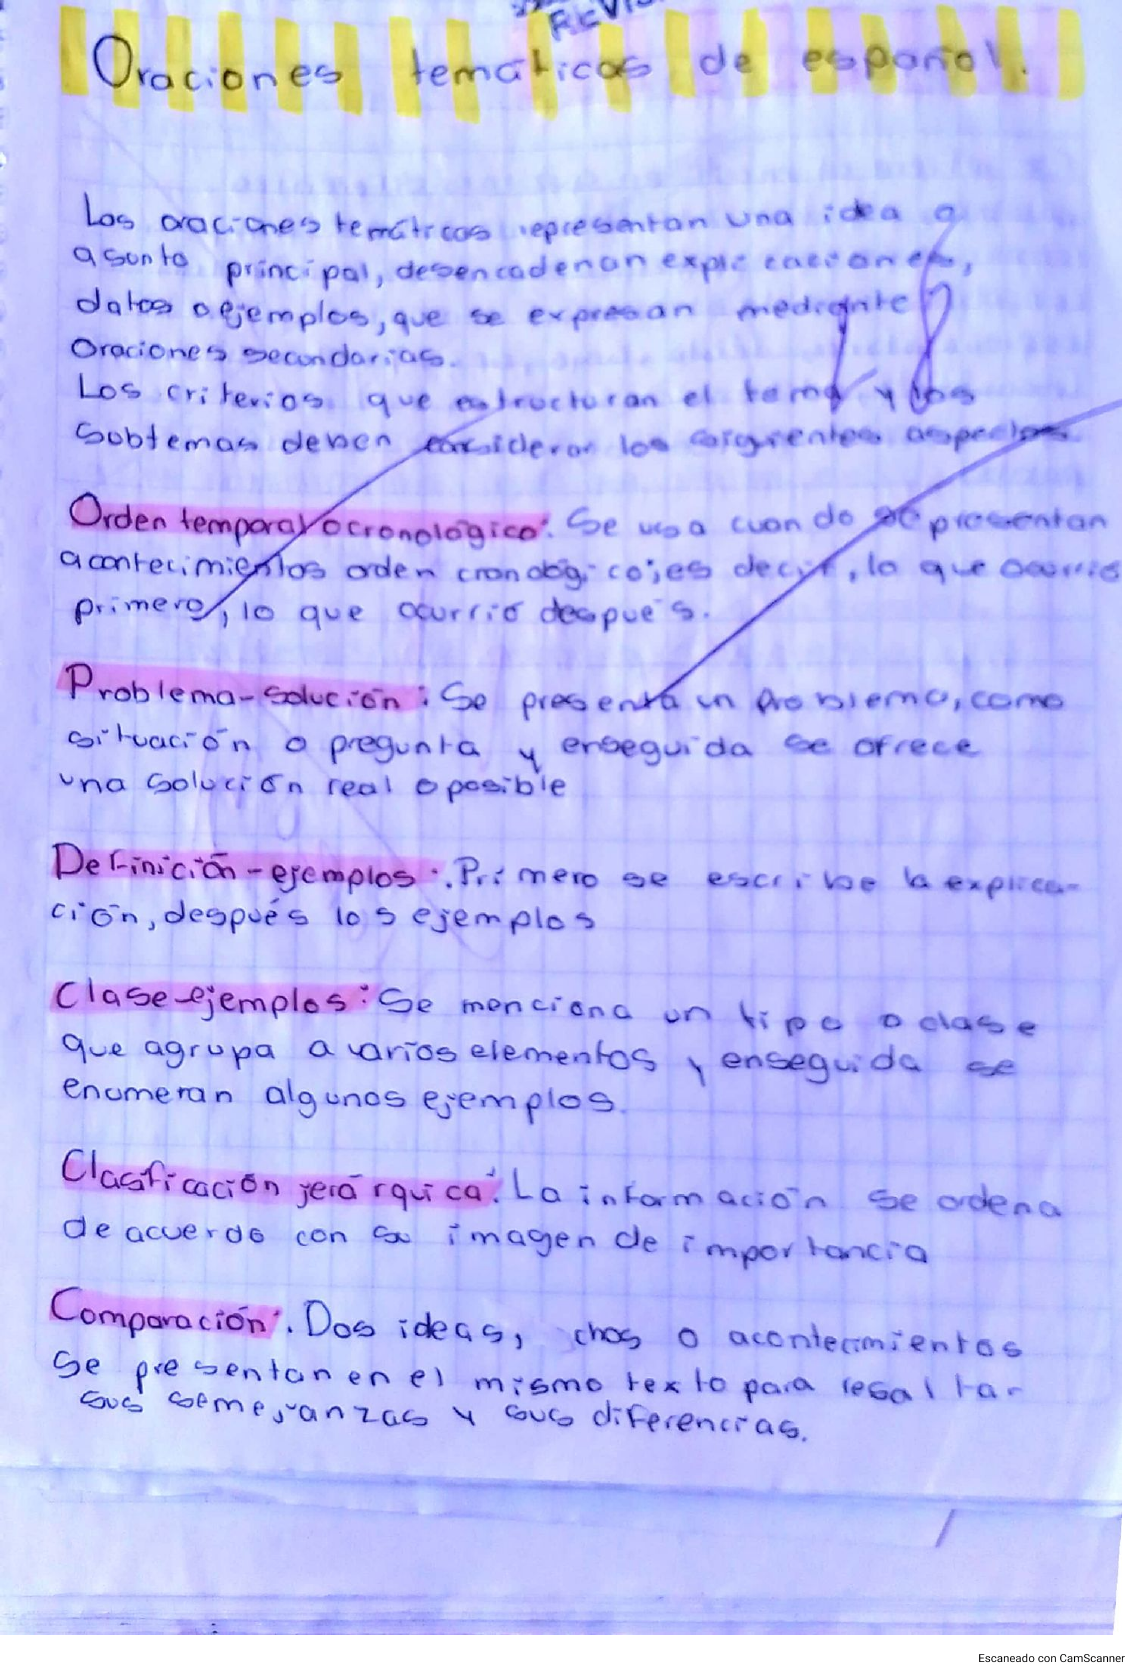 Oraciones temáticas de español.
Las oraciones temáticas representan una idea o
asunto principal, desencadenan explicaciones,
datos o ejemplos, que se expresan mediante
Oraciones secundarias.
Los criterios que estructuran el tema y los
Subtemas deben considerar los siguientes aspectos.
Orden temporal o cronológico: Se usa cuando se presentan
acontecimientos orden cronológico; es decir, lo que ocurrió
primero, lo que ocurrió después.
Problema-solución: Se presenta un problema, como
situación o pregunta y enseguida se ofrece
una solución real o posible
Definición-ejemplos: Primero se escribe la explica-
ción, después los ejemplos
Clase-ejemplos: Se menciona un tipo o clase
que agrupa a varios elementos y enseguida se
enumeran algunos ejemplos.
Clasificación jerárquica: La información se ordena
de acuerdo con su imagen de importancia
Comparación: Dos ideas, chos o acontecimientos
se presentan en el mismo texto para resaltar
sus semejanzas y sus diferencias.
Escaneado con CamScanner